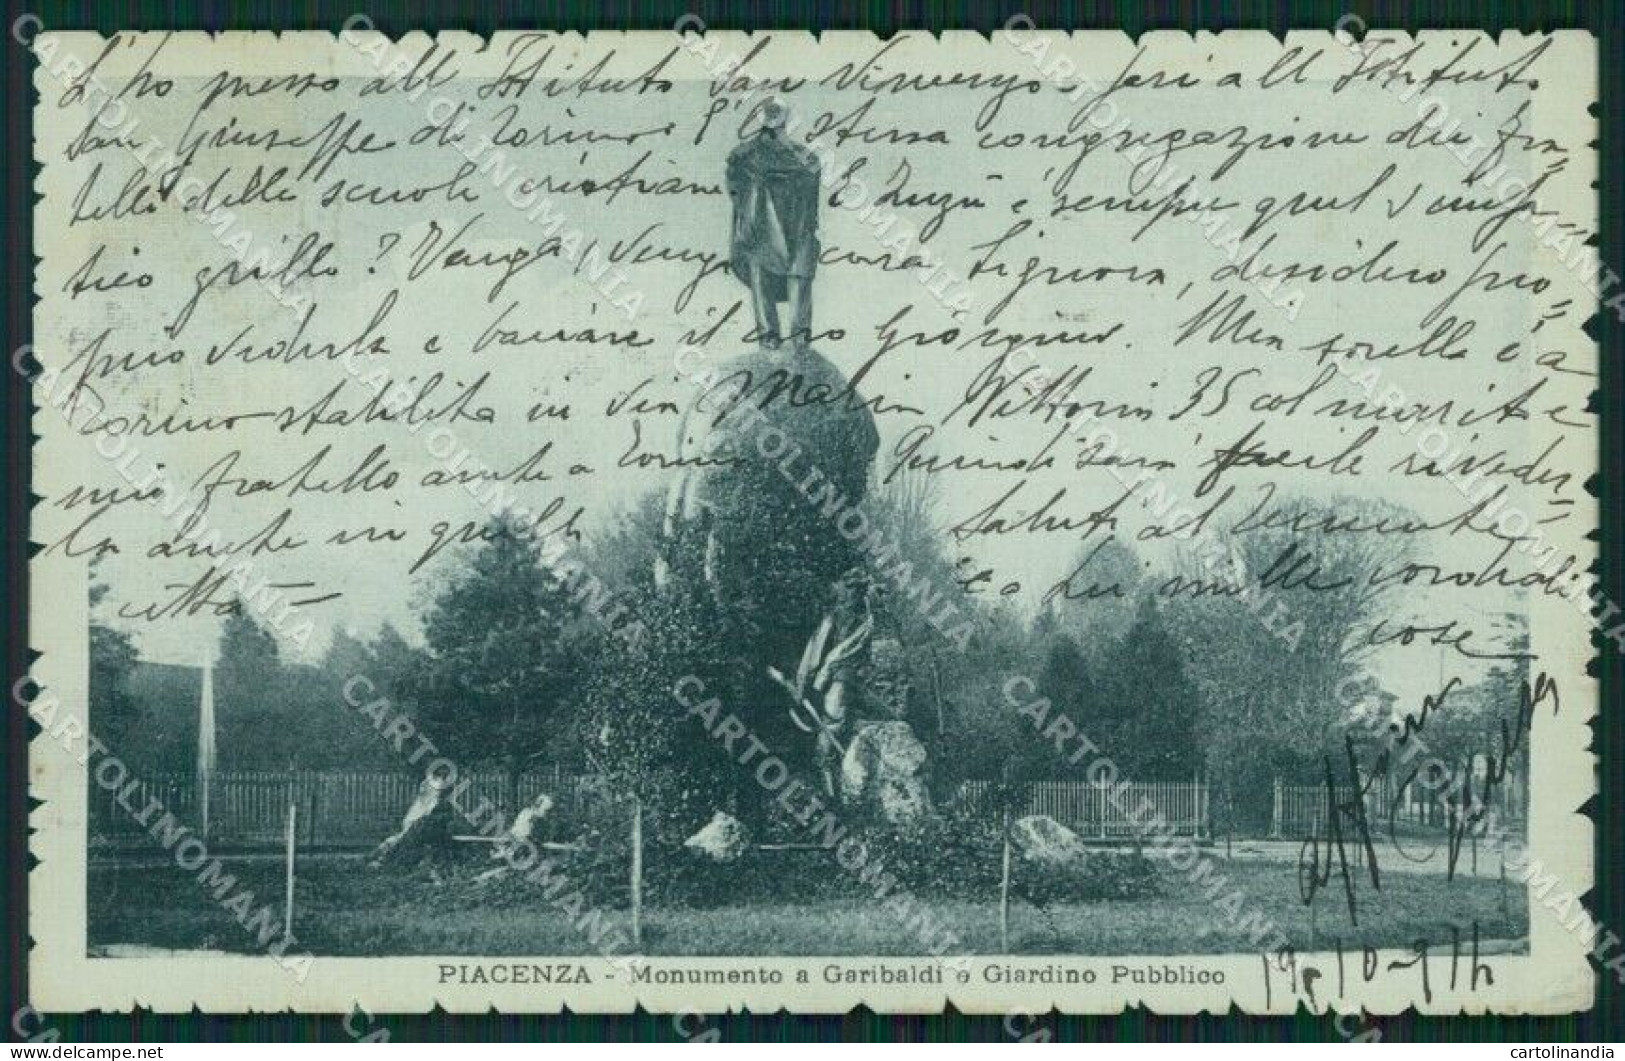 L'ho messo all' Istituto San Vincenzo - pari all Istituto
San Giuseppe di Torino: l'è stessa congregazione dei Fra=
telli delle scuole cristiane E Zuzù è sempre quel simpa=
tico grillo? Venga, venga cara Signora, desidero pro=
prio vederla e baciare il caro Mia sorella è a
Torino stabilita in via Maria Vittoria 35 col marito e
mio fratello anche a Torino Quindi sarà facile riveder=
la anche in quella Saluti al Tenente
città - e a Lei mille cordiali
cose
Aff
PIACENZA - Monumento a Garibaldi e Giardino Pubblico
19-10-914
CARTOLINOMANIA
cartolinandia